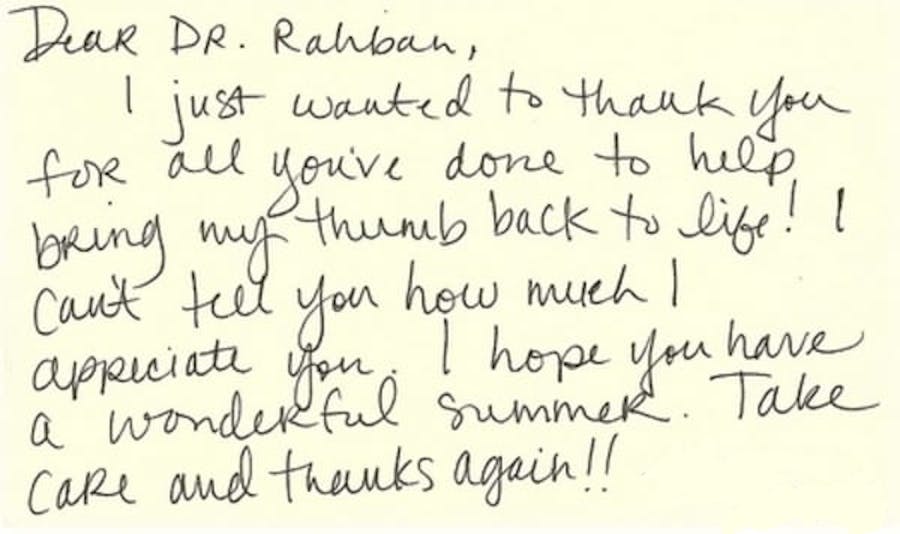 Dear Dr. Rahban,
I just wanted to thank you
for all you've done to help
bring my thumb back to life! I
can't tell you how much I
appreciate you. I hope you have
a wonderful summer. Take
care and thanks again!!